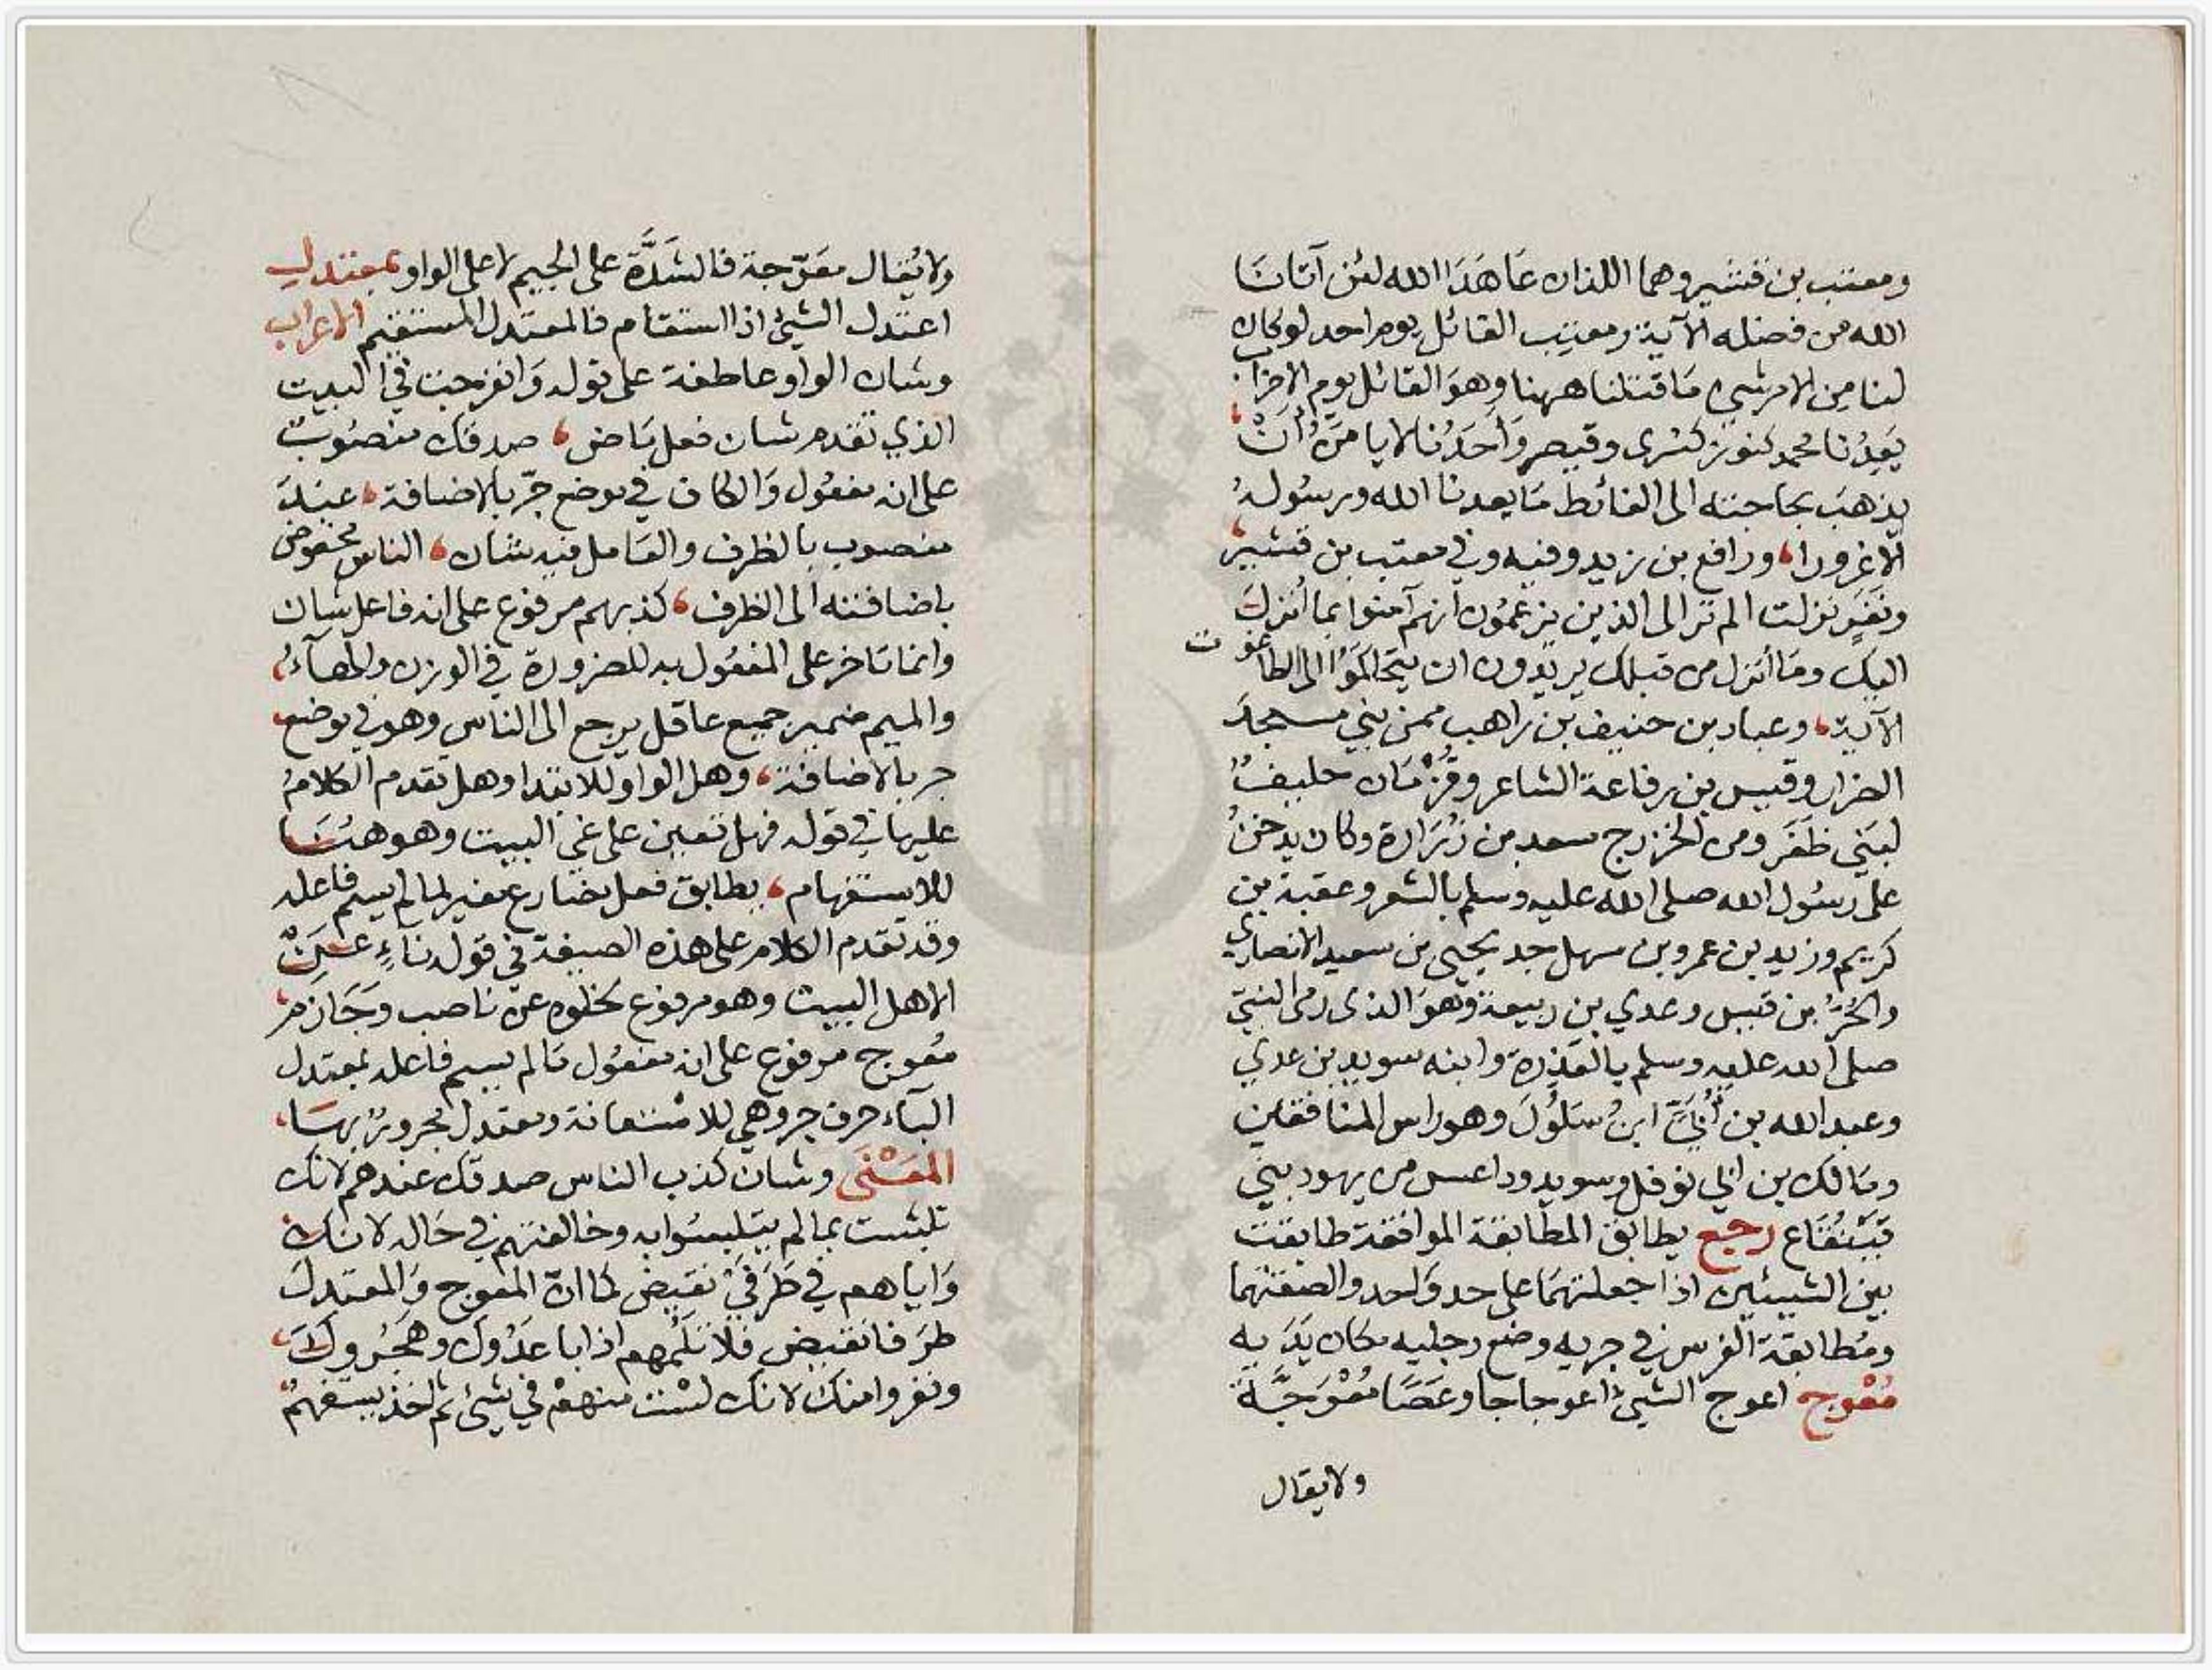 ومعتب بن قشير وهما اللذان عَاهَدَا الله لئن آتانَا
الله من فضله الآية ومعتب القائل يوم احد لو كان
لنا من الامر شيء مَا قتلنا ههنا وهوَ القائل يوم الاحزاب
يَعِدُنا محمد كنوز كسْرى وقيصر وَاَحَدُنا لا يامَنُ أنْ
يذهَبَ بحاجته الى الغائط مَا يعدنا الله ورسُولهُ
الّا غرورا، ورافع بن زيد وفيه وفي معتب بن قشير
ونَفَرٍ نزلت الم تر الى الذين يزعمُون انهم آمنوا بما أُنزلَ
اليك ومَا أنزل من قبلك يريدون ان يتحاكمَوُا الى الطاغوت
الآية، وعباد بن حنيف بن راهب ممن بني مسجدَ
الضرار وقيس بن رفاعة الشاعر وقُزْمَان حليفُ
لبَني ظَفَر ومن الخزرج سعد بن زُرَارة وكان يدخنُ
على رسُول الله صلى الله عليه وسلم بالشعر وعقبة بن
كريم وزيد بن عمرو بن سهل جد يحيى بن سعيد الانصاري
والحُرُّ بن قيس وعدي بن ربيعة وهوَ الذى رمى النبيّ
صلى الله عليه وسلم بالقذِرة وابنه سويد بن عدي
وعبد الله بن أُبَيّ ابنُ سَلُولَ وهو راس المنافقين
ومَالك بن ابي نوفل وسويد وداعس من يهود بني
قَيْنُقَاع رجع يطابق المطابقة الموافقة طابقت
بين الشيئين اذا جعلتهمَا على حد وَاحد والصقتهما
ومُطابقة الفرس في جريه وضع رجليه مكان يَدَيه
مُعْوج اعوج الشيئ اعوجاجا وعَصًا مُعْوَجَّة
ولا يقال
ولا يُقال معَوّجة فالشَدَّة على الجيم لا على الواو بمعتدلِ
اعتدل الشيئ اذا استقام فالمعتدل المستقيم الاعراب
وشان الواو عاطفة على قوله وَانفرجت في البيت
الذي تقدم شان فعل مَاض، صدقك منصُوبٌ
على انه مفعُول وَالكاف في موضع جرّ بالاضافة، عندَ
منصوب بالظرف والعَامل فيه شان، الناس مخفوض
باضافته الى الظرف، كذبهم مرفوع على انه فاعل شان
وانما تاخر على المفعُول به للضرورة في الوزن والهآءُ،
والميم ضمير جميع عاقل يرجع الى الناس وهو في موضع
جر بالاضافة، وهل الواو للابتدا وهل تقدم الكلامُ
عليها في قوله فهل تعين على غي البيت وهو هُنَا
للاستفهام، يطابق فعل مضارع مغير لما لم يسم فاعله
وقد تقدم الكلام على هذه الصيغة في قوله ناءٍ عَنِ
الاهل البيت وهو مرفوع لخلوه عن ناصب وَجَازم،
مُعوج مرفوع على انه مفعُول مَا لم يسم فاعله بمعتدل
البآء حرف جر وهي للاسْتعانة ومعتدل مجرورٌ بهَا،
المعَنْى وشان كذب الناس صدقك عندهم لانك
تلبست بما لم يتلبسُوا به وخالفتهم في حَاله لانك
وَاياهم في طَرَفَيْ نقيض كما انّ المعوج وَالمعتدلَ
طرَفا نقيض فلا تَلُمهم اذا باعدُوك وهَجرُوكَ،
ونفروا منك لانك لسْت منهمْ في شيئ ثم اخذ يستفهمُ